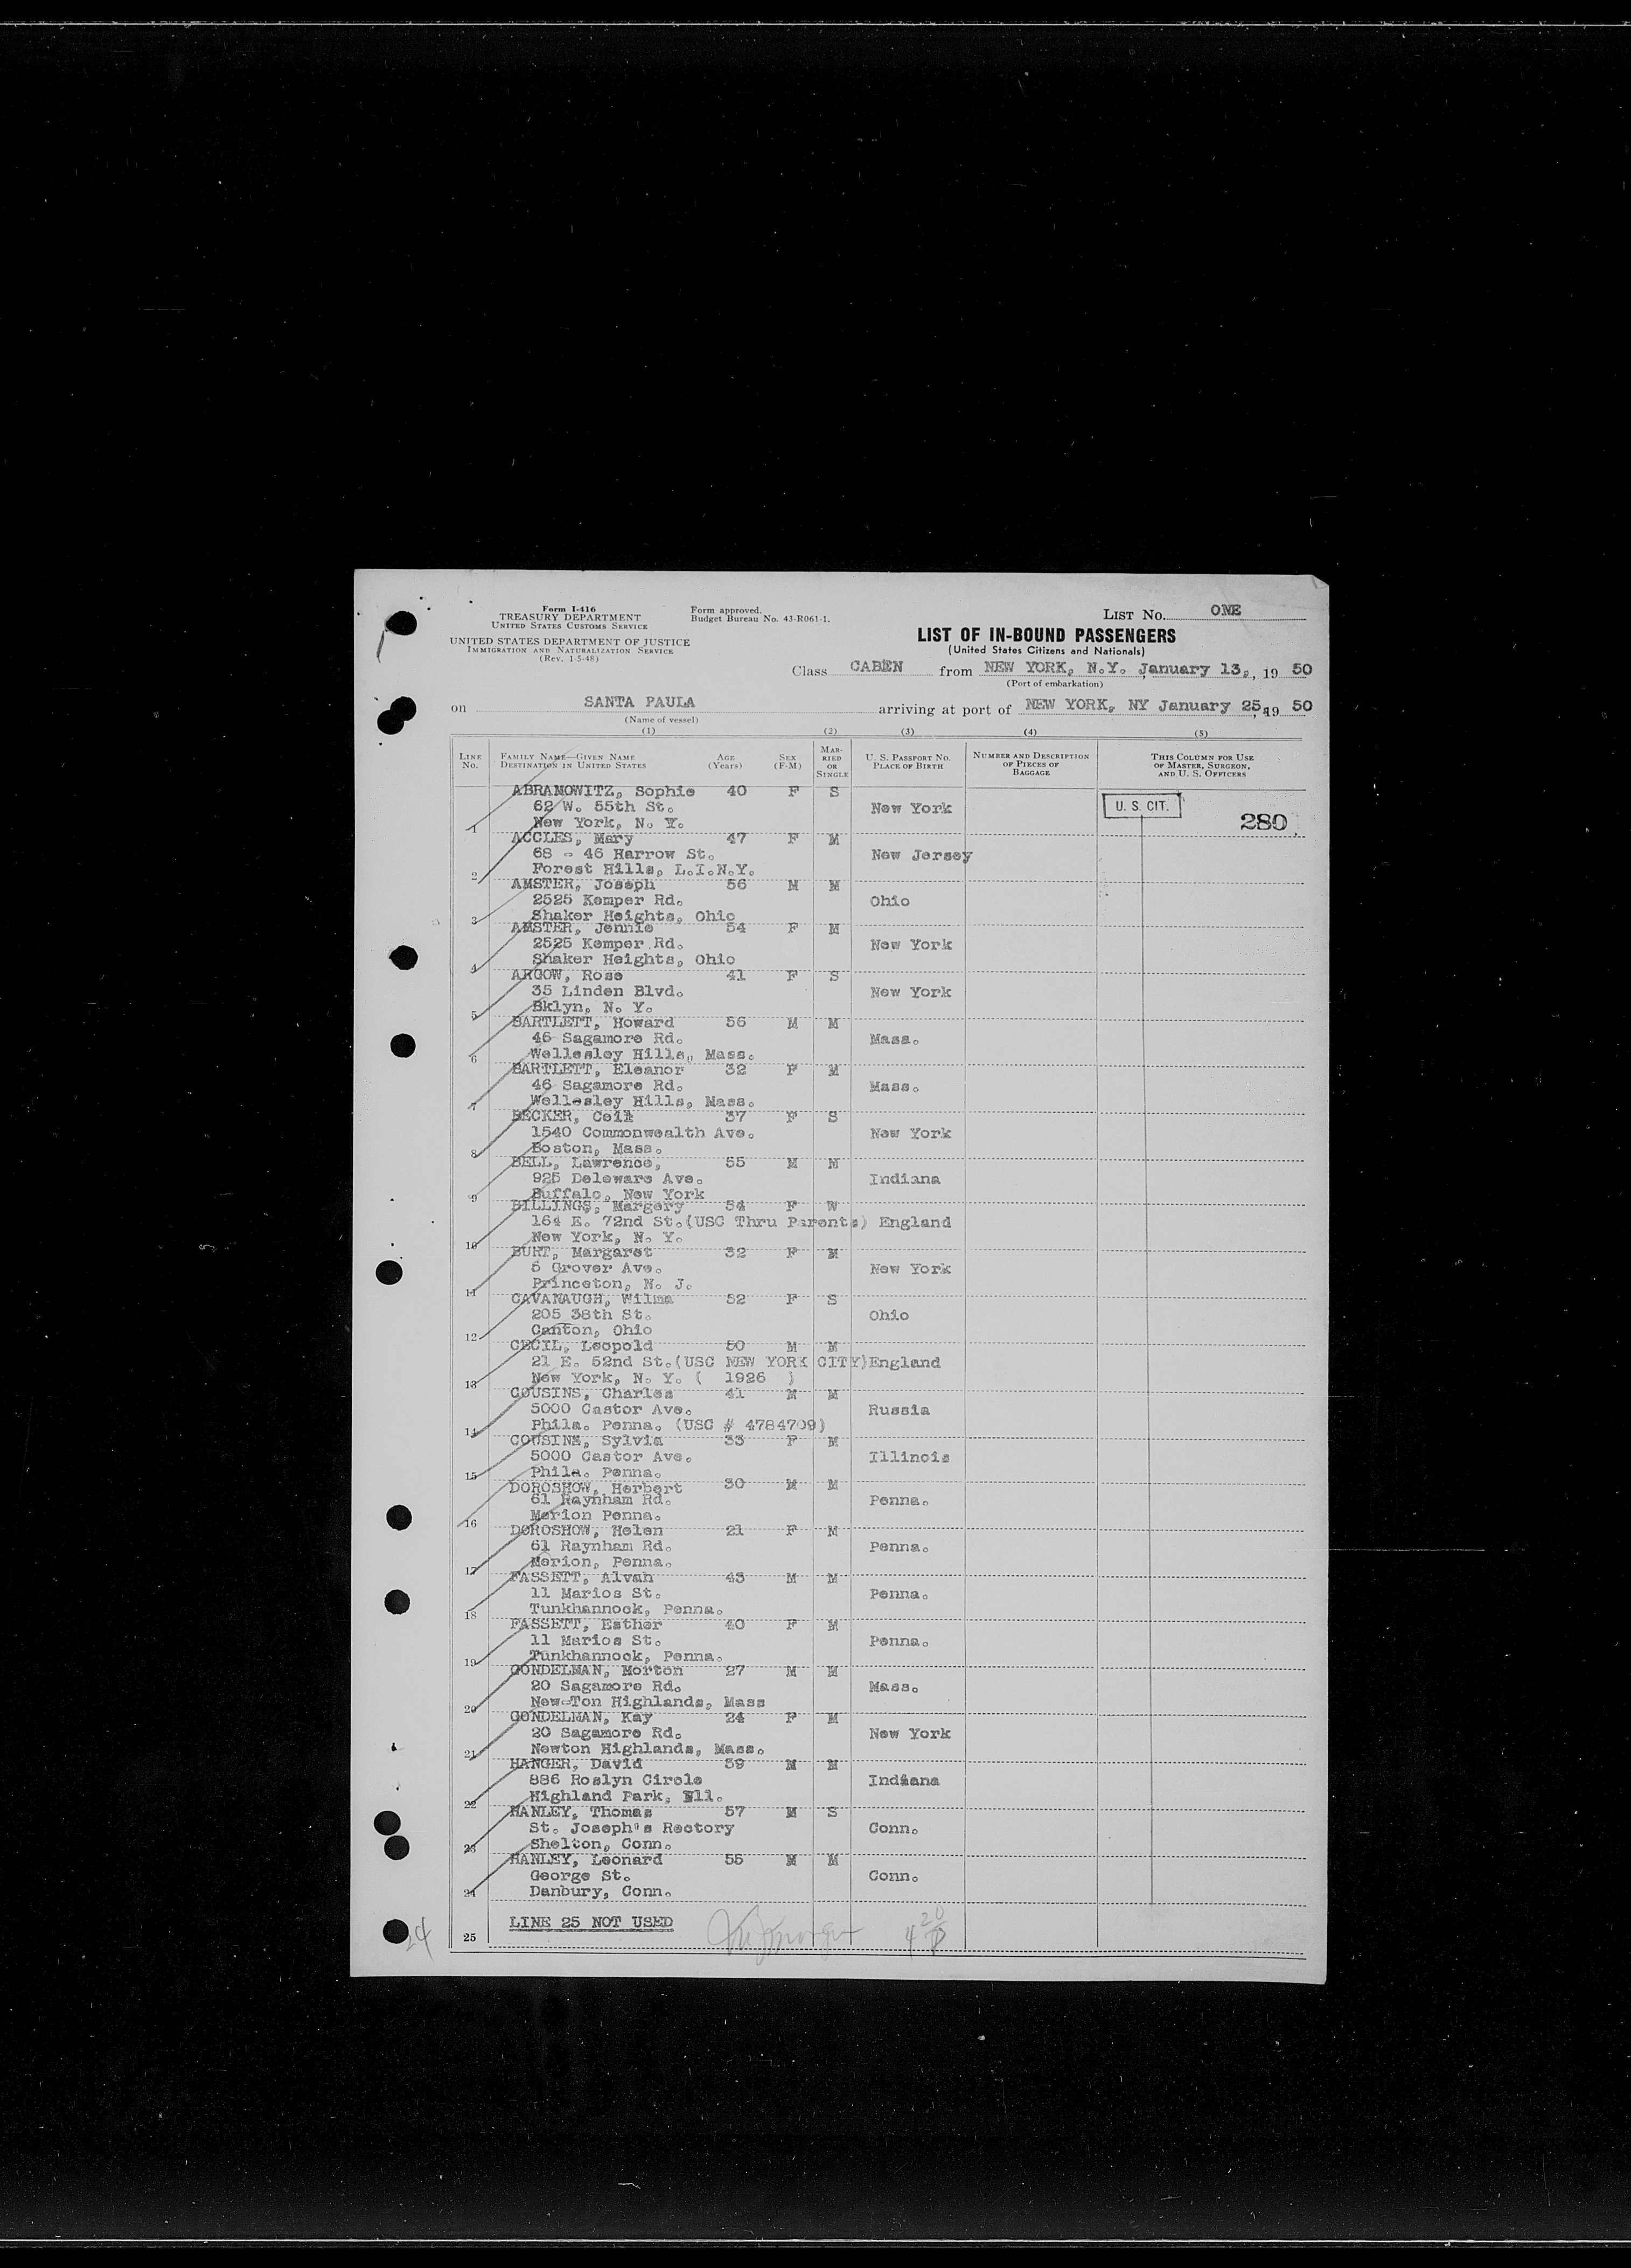 Form I-416
TREASURY DEPARTMENT
UNITED STATES CUSTOMS SERVICE
UNITED STATES DEPARTMENT OF JUSTICE
IMMIGRATION AND NATURALIZATION SERVICE
(Rev. 1-5-48)
Form approved.
Budget Bureau No. 43-R061-1.
LIST No. ONE
LIST OF IN-BOUND PASSENGERS
(United States Citizens and Nationals)
Class CABEN from NEW YORK, N.Y. January 13, , 19 50
(Port of embarkation)
on SANTA PAULA arriving at port of NEW YORK, NY January 25, 19 50
(Name of vessel)
(1) (2) (3) (4) (5)
LINE No. FAMILY NAME—GIVEN NAME DESTINATION IN UNITED STATES AGE (Years) SEX (F-M) MARRIED OR SINGLE U. S. PASSPORT No. PLACE OF BIRTH NUMBER AND DESCRIPTION OF PIECES OF BAGGAGE THIS COLUMN FOR USE OF MASTER, SURGEON, AND U. S. OFFICERS
ABRAMOWITZ, Sophie 40 F S
62 W. 55th St. New York U. S. CIT.
1 New York, N. Y. 280
ACCLES, Mary 47 F M
68 - 46 Harrow St. New Jersey
2 Forest Hills, L.I.N.Y.
AMSTER, Joseph 56 M M
2525 Kemper Rd. Ohio
3 Shaker Heights, Ohio
AMSTER, Jennie 54 F M
2525 Kemper Rd. New York
4 Shaker Heights, Ohio
ARGOW, Rose 41 F S
35 Linden Blvd. New York
5 Bklyn, N. Y.
BARTLETT, Howard 56 M M
46 Sagamore Rd. Mass.
6 Wellesley Hills, Mass.
BARTLETT, Eleanor 32 F M
46 Sagamore Rd. Mass.
7 Wellesley Hills, Mass.
BECKER, Ceil 37 F S
1540 Commonwealth Ave. New York
8 Boston, Mass.
BELL, Lawrence, 55 M M
925 Deleware Ave. Indiana
9 Buffalo, New York
BILLINGS, Margery 54 F W
164 E. 72nd St.(USC Thru Parents) England
10 New York, N. Y.
BURT, Margaret 32 F M
5 Grover Ave. New York
11 Princeton, N. J.
CAVANAUGH, Wilma 52 F S
205 38th St. Ohio
12 Canton, Ohio
CECIL, Leopold 50 M M
21 E. 52nd St.(USC NEW YORK CITY)England
13 New York, N. Y. ( 1926 )
COUSINS, Charles 41 M M
5000 Castor Ave. Russia
14 Phila. Penna. (USC # 4784709)
COUSINS, Sylvia 33 F M
5000 Castor Ave. Illinois
15 Phila. Penna.
DOROSHOW, Herbert 30 M M
61 Raynham Rd. Penna.
16 Merion Penna.
DOROSHOW, Helen 21 F M
61 Raynham Rd. Penna.
17 Merion, Penna.
FASSETT, Alvah 43 M M
11 Marios St. Penna.
18 Tunkhannock, Penna.
FASSETT, Esther 40 F M
11 Marios St. Penna.
19 Tunkhannock, Penna.
GONDELMAN, Morton 27 M M
20 Sagamore Rd. Mass.
20 New-Ton Highlands, Mass
GONDELMAN, Kay 24 F M
20 Sagamore Rd. New York
21 Newton Highlands, Mass.
HANGER, David 39 M M
886 Roslyn Circle Indiana
22 Highland Park, Ill.
HANLEY, Thomas 57 M S
St. Joseph's Rectory Conn.
23 Shelton, Conn.
HANLEY, Leonard 55 M M
George St. Conn.
24 Danbury, Conn.
25 LINE 25 NOT USED
24